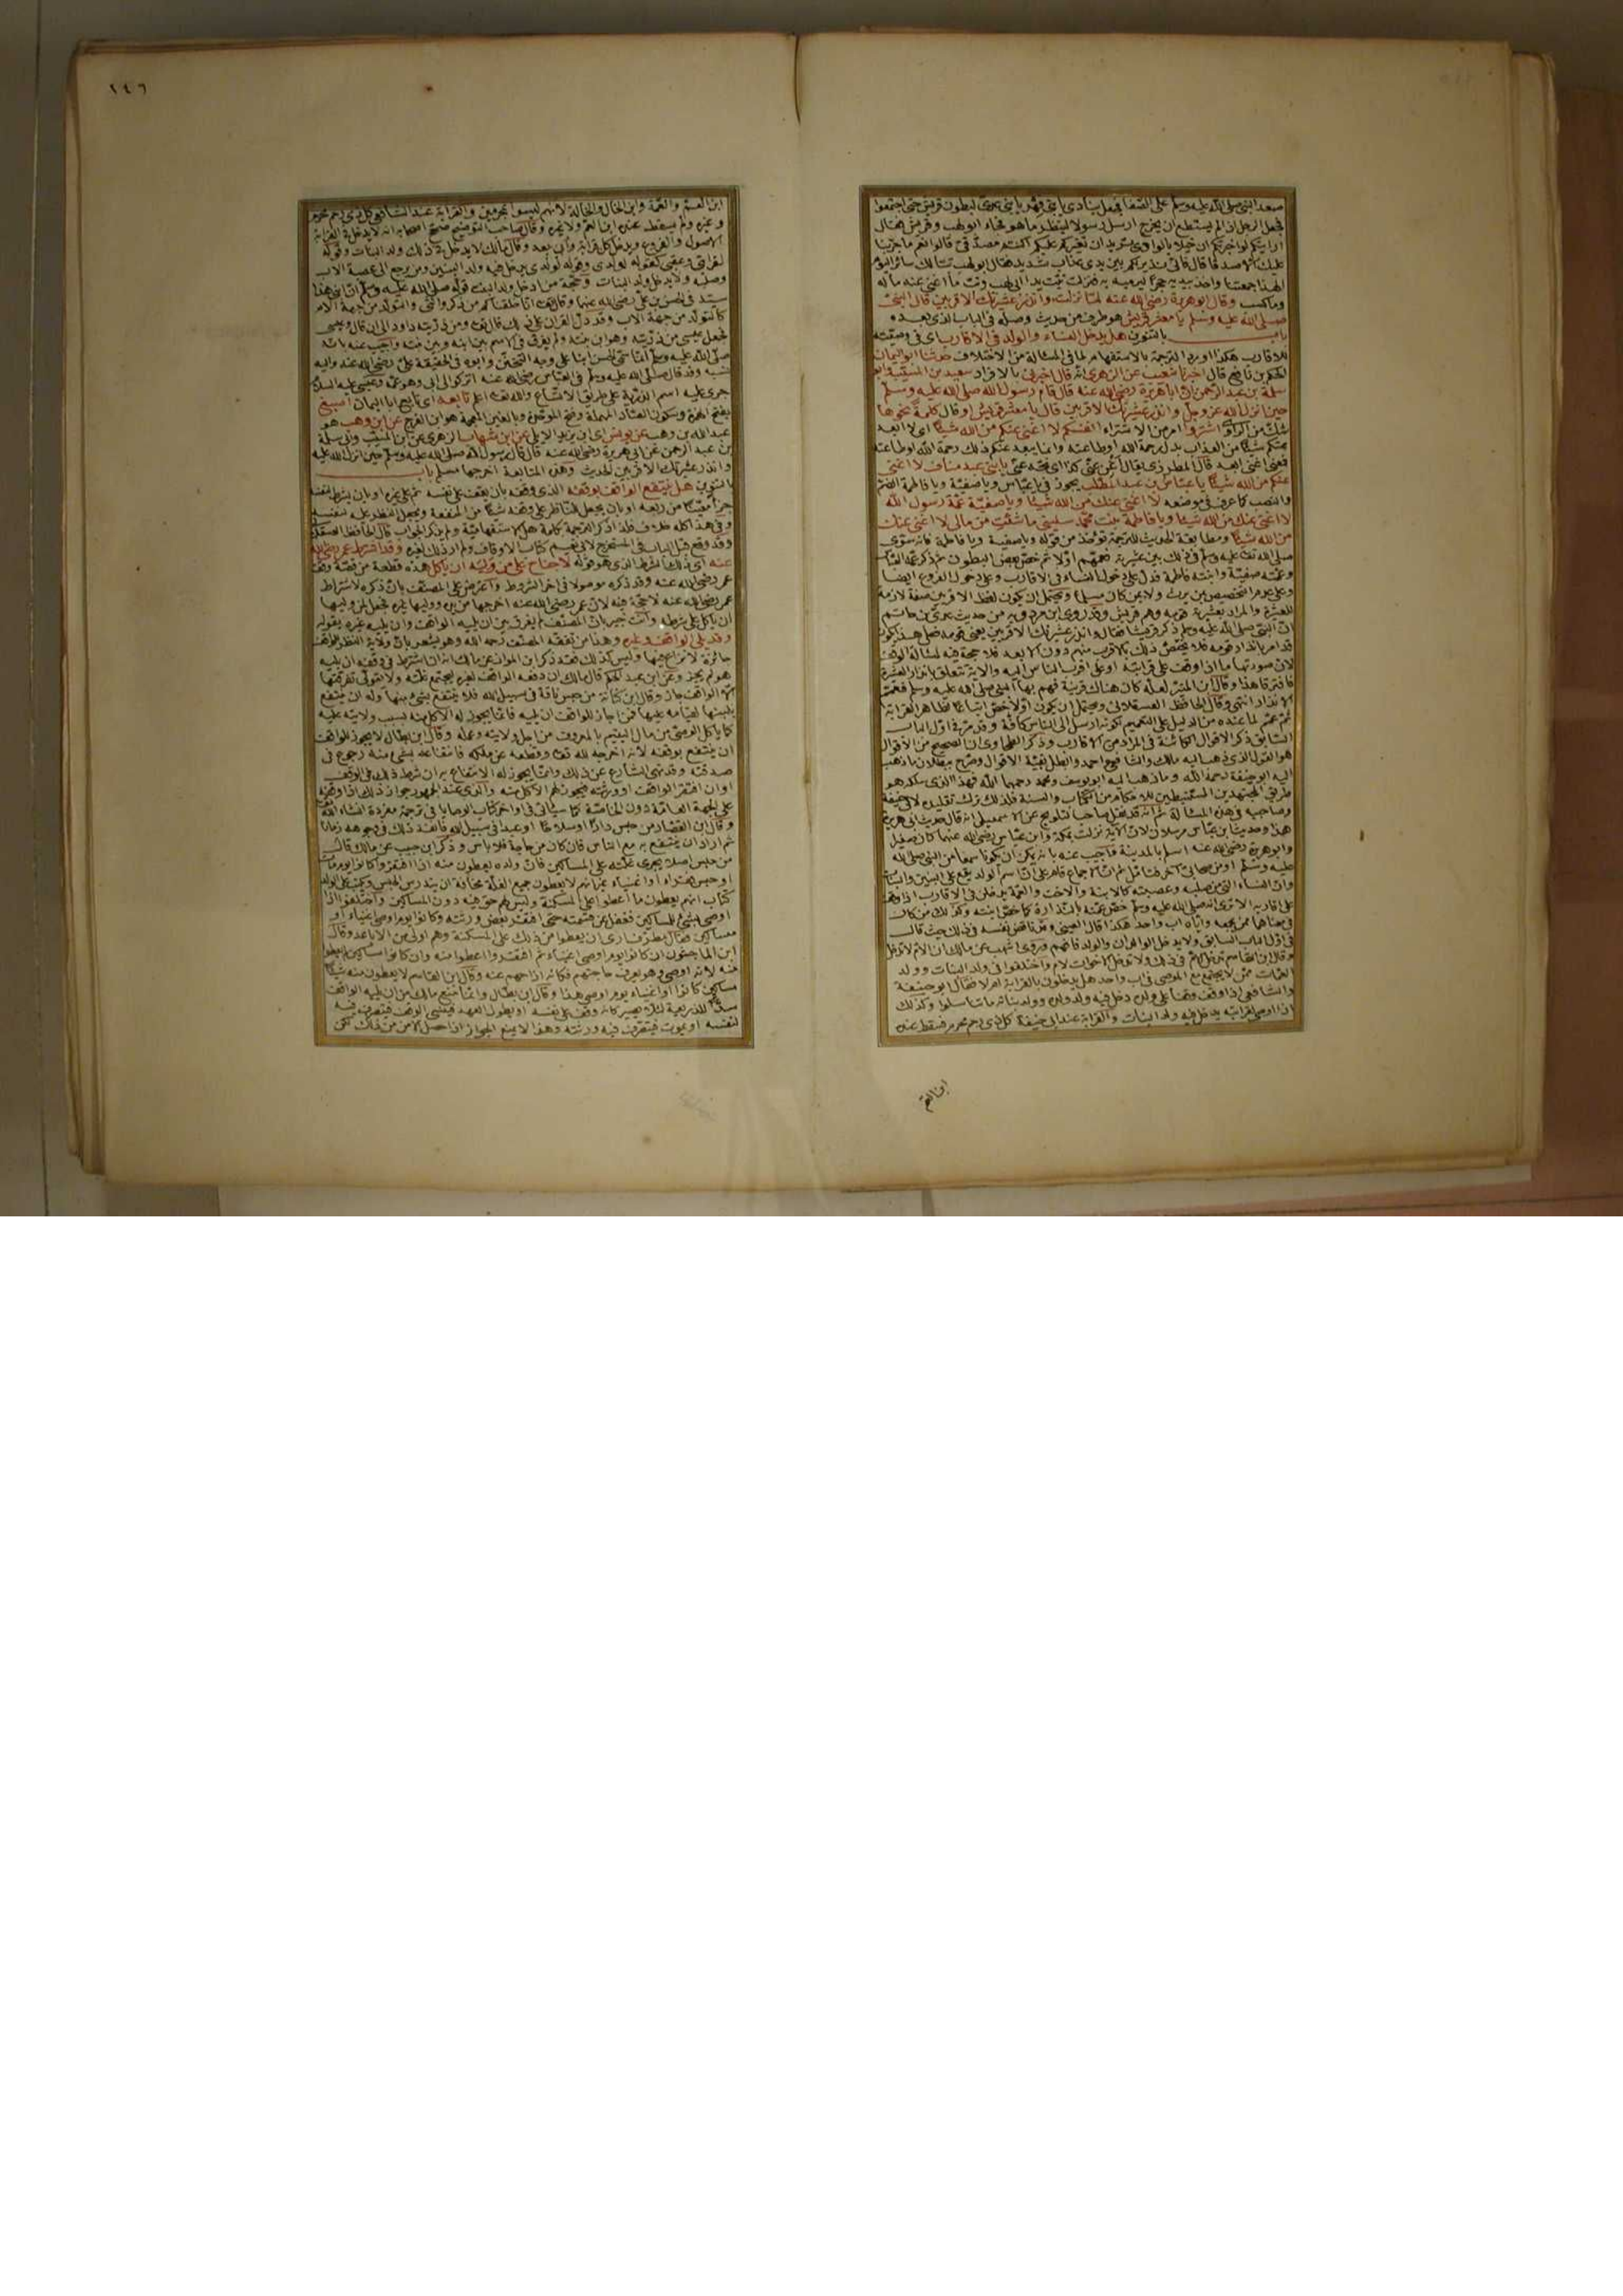 صعد النبي صلى الله عليه وسلم على الصفا فجعل ينادي يا بني فهر يا بني عدي لبطون قريش حتى اجتمعوا
فجعل الرجل اذا لم يستطع ان يخرج ارسل رسولا لينظر ما هو فجاء ابو لهب وقريش فقال
ارايتكم لو اخبرتكم ان خيلا بالوادي تريد ان تغير عليكم اكنتم مصدقي قالوا نعم ما جربنا
عليك الا صدقا قال فاني نذير لكم بين يدي عذاب شديد فقال ابو لهب تبا لك سائر اليوم
الهذا جمعتنا واخذ بيديه حجرا ليرميه به فنزلت تبت يدا ابي لهب وتب ما اغنى عنه ماله
وما كسب وقال ابو هريرة رضي الله عنه لما نزلت وانذر عشيرتك الاقربين قال النبي
صلى الله عليه وسلم يا معشر قريش هو طرف من حديث وصله في الباب الذي بعده
باب بالتنوين هل يدخل النساء والولد في الاقارب اي في وصيته
للاقارب هكذا اورد الترجمة بالاستفهام لما في المسئالة من الاختلاف حدثنا ابو اليمان
الحكم بن نافع قال اخبرنا شعيب عن الزهري انه قال اخبرني بالافراد سعيد بن المسيب وابو
سلمة بن عبد الرحمن ان ابا هريرة رضي الله عنه قال قام رسول الله صلى الله عليه وسلم
حين انزل الله عز وجل وانذر عشيرتك الاقربين قال يا معشر قريش او قال كلمة نحوها
شك من الراوي اشتروا امر من الاشتراء انفسكم لا اغني عنكم من الله شيئا اي لا ابعد
عنكم شيئا من العذاب بدل رحمة الله او طاعته وانما يبعد عنكم ذلك رحمة الله او طاعته
فمعنى اغني ابعد قال المطرزي يقال اغن عني كذا اي نحه عني يا بني عبد مناف لا اغني
عنكم من الله شيئا يا عباس بن عبد المطلب يجوز في يا عباس ويا صفية ويا فاطمة الضم
والنصب كما عرف في موضعه لا اغني عنك من الله شيئا ويا صفية عمة رسول الله
لا اغني عنك من الله شيئا ويا فاطمة بنت محمد سليني ما شئت من مالي لا اغني عنك
من الله شيئا ومطابقة الحديث للترجمة تؤخذ من قوله ويا صفية ويا فاطمة فانه سوى
صلى الله تعالى عليه وسلم في ذلك بين عشيرته فعمهم اولا ثم خص بعض البطون ثم ذكر عمه العباس
وعمته صفية وابنته فاطمة فدل على دخول النساء في الاقارب وعلى دخول الفروع ايضا
وعلى عدم التخصيص بمن يرث ولا بمن كان مسلما ويحتمل ان يكون لفظ الاقربين صفة لازمة
للعشيرة والمراد بعشيرته قومه وهم قريش وقد روى ابن مردويه من حديث عدي بن حاتم
ان النبي صلى الله عليه وسلم ذكر قريشا فقال وانذر عشيرتك الاقربين يعني قومه فعلى هذا يكون
قد امر بانذار قومه فلا يختص ذلك بالاقرب منهم دون الابعد فلا حجة فيه لمسئالة الوقف
لان صورتها ما اذا وقف على قرابته او على اقرب الناس اليه والاية تتعلق بانذار العشيرة
فافترقا هذا وقال ابن المنير لعله كان هناك قرينة فهم بها النبي صلى الله عليه وسلم فعمم
الانذار انتهى وقال الحافظ العسقلاني ويحتمل ان يكون اولا خص اتباعا لظاهر القرابة
ثم عمم لما عنده من الدليل على التعميم لكونه ارسل الى الناس كافة وقد مر في اول الباب
السابق ذكر الاقوال الكائنة في المراد من الاقارب وذكر الطحاوي ان الصحيح من الاقوال
هو القول الذي ذهب اليه مالك والشافعي واحمد وابطل بقية الاقوال وصرح ببطلان ما ذهب
اليه ابو حنيفة رحمه الله وما ذهب اليه ابو يوسف ومحمد رحمهما الله فهذا الذي سلكه هو
طريق المجتهدين المستنبطين للاحكام من الكتاب والسنة فلذلك ترك تقليده لابي حنيفة
وصاحبيه في هذه المسئالة ثم انه قد نقل صاحب التلويح عن الاسمعيلي انه قال حديث ابي هريرة
هذا وحديث ابن عباس مرسلان لان الآية نزلت بمكة وابن عباس رضي الله عنهما كان صغيرا
وابو هريرة رضي الله عنه اسلم بالمدينة واجيب عنه بانه يمكن ان يكونا سمعا من النبي صلى الله
عليه وسلم او من صحابي آخر فتامل ثم ان الاجماع قام على ان اسم الولد يقع على البنين والبنات
وان النساء التي من صلبه وعصبته كالابنة والاخت والعمة يدخلن في الاقارب اذا وقف
على اقاربه الا ترى انه صلى الله عليه وسلم خص عمته بالنذارة كما خص ابنته وكذلك من كان
في معناهما ممن يجمعه واياه اب واحد هكذا قال العيني وقد ناقض نفسه في ذلك حيث قال
في اول الباب السابق ولا يدخل الوالدان والولد فافهم وروى اشهب عن مالك ان الام لا تدخل
وقال ابن القاسم تدخل الام في ذلك ولا تدخل الاخوات لام واختلفوا في ولد البنات وولد
العمات ممن لا يجتمع مع الموصي في اب واحد هل يدخلون بالقرابة ام لا فقال ابو حنيفة
والشافعي اذا وقف وقفا على ولده دخل فيه ولد ولده وولد بناته ما تناسلوا وكذلك
اذا اوصى لقرابته يدخل فيه ولد البنات والقرابة عند ابي حنيفة كل ذي رحم محرم فسقط عنده
ابن العم
١٤٦
ابن العم والعمة وابن الخال والخالة لانهم ليسوا بمحرمين والقرابة عند الشافعي كل ذي رحم محرم
وغيره ولم يسقط عنده ابن العم ولا غيره وقال صاحب التوضيح صحح اصحابه انه لا يدخل في القرابة
الاصول والفروع ويدخل كل قرابة وان بعد وقال مالك لا يدخل في ذلك ولد البنات وقوله
لقرابتي وعقبي كقوله لولدي وقوله لولدي يدخل فيه ولد البنين ومن يرجع الى عصبة الاب
وصلبه ولا يدخل ولد البنات وحجة من ادخل ولد البنت قوله صلى الله عليه وسلم ان ابني هذا
سيد في الحسن بن علي رضي الله عنهما وقال تعالى انا خلقناكم من ذكر وانثى والتولد من جهة الام
كالتولد من جهة الاب وقد دل القرآن على ذلك قال تعالى ومن ذريته داود الى ان قال وعيسى
فجعل عيسى من ذريته وهو ابن بنته ولم يفرق في الاسم بين ابنه وبين بنته واجيب عنه بانه
صلى الله عليه وسلم انما سمى الحسن ابنا على وجه التحنن وابوه في الحقيقة علي رضي الله عنه واليه
نسبه وقد قال صلى الله عليه وسلم في العباس رضي الله عنه اتركوا لي ابي وهو عمه وعيسى عليه السلام
جرى عليه اسم الذرية على طريق الاتساع والله تعالى اعلم تابعه اي تابع ابا اليمان اصبغ
بفتح الهمزة وسكون الصاد المهملة وفتح الموحدة وبالغين المعجمة هو ابن الفرج عن ابن وهب هو
عبد الله بن وهب عن يونس اي ابن يزيد الايلي عن ابن شهاب الزهري عن ابن المسيب وابي سلمة
بن عبد الرحمن عن ابي هريرة رضي الله عنه قال قال رسول الله صلى الله عليه وسلم حين انزل الله عليه
وانذر عشيرتك الاقربين الحديث وهذه المتابعة اخرجها مسلم باب
بالتنوين هل ينتفع الواقف بوقفه الذي وقفه بان يقف على نفسه ثم على غيره او بان يشرط لنفسه
جزءا معينا من ريعه او بان يجعل للناظر على وقفه شيئا من المنفعة ويجعل النظر عليه لنفسه
وفي هذا كله خلاف فلذا ذكر الترجمة بكلمة هل الاستفهامية ولم يذكر الجواب قال الحافظ العسقلاني
وقد وقع قبل الباب في المستخرج لابي نعيم كتاب الاوقاف ولم ار ذلك لغيره وقد اشترط عمر رضي الله
عنه اي ذلك الشرط الذي هو قوله لا جناح على من وليه ان ياكل هذه قطعة من قصة وقف
عمر رضي الله عنه وقد ذكره موصولا في اخر الشروط واعترض على المصنف بان ذكره لاشتراط
عمر رضي الله عنه لا حجة فيه لان عمر رضي الله عنه اخرجها من يده ووليها غيره فجعل لمن وليها
ان ياكل على شرطه وانت خبير بان المصنف لم يفرق بين ان يليه الواقف وان يليه غيره بقوله
وقد يلي الواقف وغيره وهذا من تفقه المصنف رحمه الله وهو يشعر بان ولاية النظر للواقف
جائزة لا نزاع فيها وليس كذلك فقد ذكر ابن المواز عن مالك انه ان اشترط في وقفه ان يليه
هو لم يجز وعن ابن عبد الحكم قال مالك ان دفعه الواقف لغيره ليجمع غلته ولا يتولى تفرقتها
الا الواقف جاز وقال ابن كنانة من حبس ناقة في سبيل الله فلا ينتفع بشيء منها وله ان ينتفع
بلبنها لقيامه عليها فمن اجاز للواقف ان يليه فانما يجوز له الاكل منه بسبب ولايته عليه
كما ياكل الوصي من مال اليتيم بالمعروف من اجل ولايته وعمله وقال ابن بطال لا يجوز للواقف
ان ينتفع بوقفه لانه اخرجه لله تعالى وقطعه عن ملكه فانتفاعه بشيء منه رجوع في
صدقته وقد نهى الشارع عن ذلك وانما يجوز له الانتفاع به ان شرط ذلك في الوقف
او ان افتقر الواقف او ورثته فيجوز لهم الاكل منه والذي عند الجمهور جواز ذلك اذا وقفه
على الجهة العامة دون الخاصة كما سيأتي في واخر كتاب الوصايا في ترجمة مفردة ان شاء الله تعالى
وقال ابن القصار من حبس دارا او سلاحا او عبدا في سبيل الله فانفذ ذلك في وجوهه زمانا
ثم اراد ان ينتفع به مع الناس فان كان من حاجة فلا باس وذكر ابن حبيب عن مالك قال
من حبس اصلا يجري غلته على المساكين فان ولده يعطون منه اذا افتقروا كانوا يوم مات
او حبس فقراء او اغنياء غير انهم لا يعطون جميع الغلة مخافة ان يندرس الحبس ويكتب على الولد
كتاب انهم يعطون ما اعطوا على المسكنة وليس لهم حق فيه دون المساكين واختلفوا اذا
اوصى بشيء للمساكين فغفل عن قسمته حتى افتقر بعض ورثته وكانوا يوم اوصى اغنياء او
مساكين فقال مطرف ارى ان يعطوا من ذلك على المسكنة وهم اولى من الاباعد وقال
ابن الماجشون ان كانوا يوم اوصى اغنياء ثم افتقروا اعطوا منه وان كانوا مساكين لم يعطوا
منه لانه اوصى وهو يعرف حاجتهم فكانه ازاحهم عنه وقال ابن القاسم لا يعطون منه شيئا
مساكين كانوا او اغنياء يوم اوصى هذا وقال ابن بطال وانما منع مالك من ان يليه الواقف
سدا للذريعة لئلا يصير كانه وقف على نفسه او يطول العهد فينسى الوقف فيتصرف فيه
لنفسه او يموت فيتصرف فيه ورثته وهذا لا يمنع الجواز اذا حصل الامن من ذلك لكن